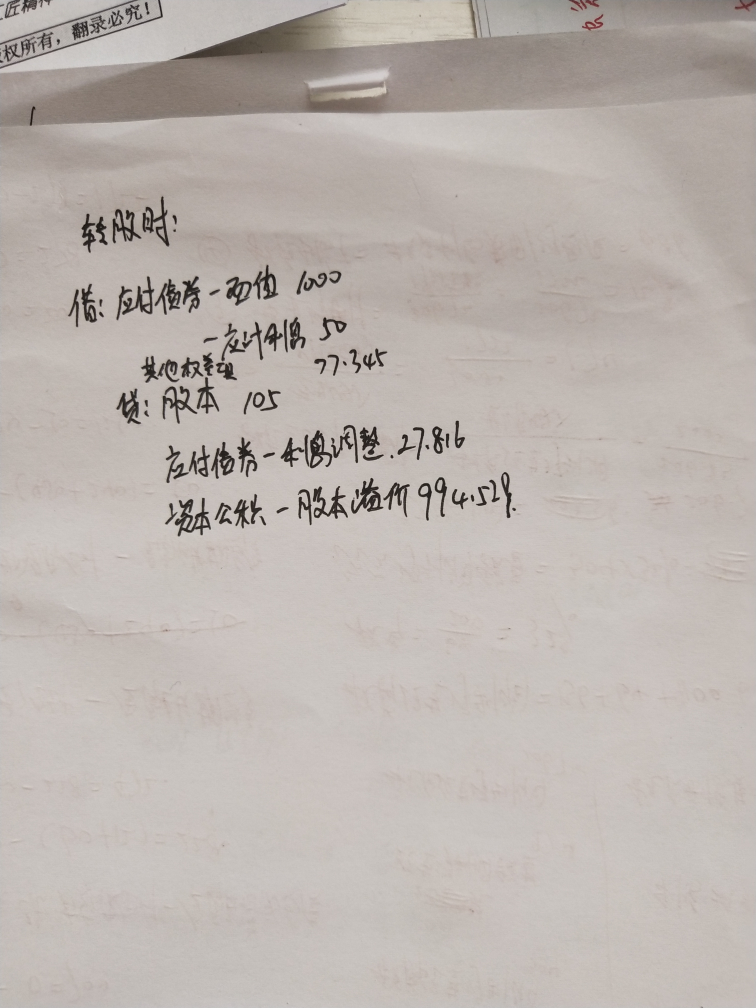 工匠精神
权所有，翻录必究！
转股时：
借：应付债券－面值 1000
－应计利息 50
其他权益工具 77.345
贷：股本 105
应付债券－利息调整 27.816
资本公积－股本溢价 994.529